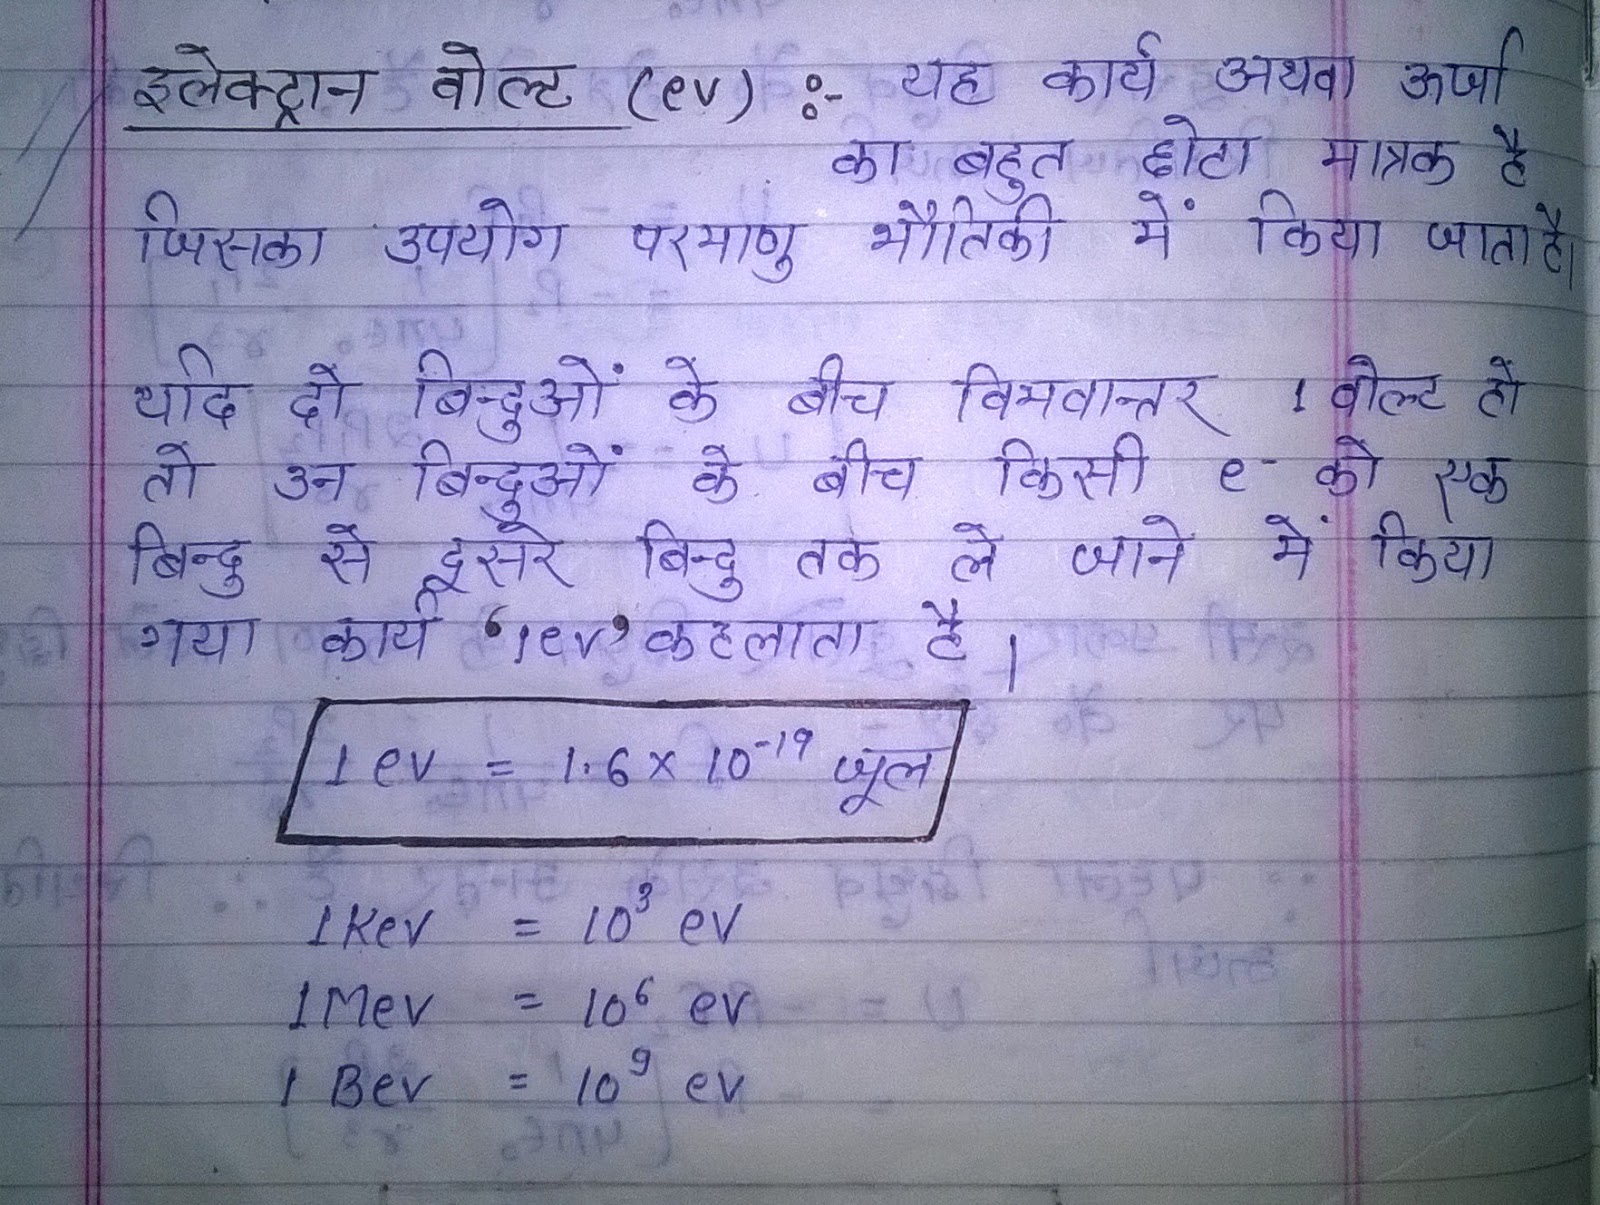 इलेक्ट्रान वोल्ट (ev) :- यह कार्य अथवा ऊर्जा
का बहुत छोटा मात्रक है
जिसका उपयोग परमाणु भौतिकी में किया जाता है।
यदि दो बिन्दुओं के बीच विभवान्तर 1 वोल्ट हो
तो उन बिन्दुओं के बीच किसी e- को एक
बिन्दु से दूसरे बिन्दु तक ले जाने में किया
गया कार्य ‘1ev’ कहलाता है।
1 ev = 1.6 × 10⁻¹⁹ जूल
1Kev = 10³ ev
1Mev = 10⁶ ev
1 Bev = 10⁹ ev